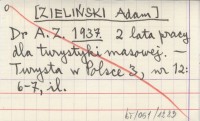 [ZIELIŃSKI Adam]
Dr A.Z. 1937. 2 lata pracy
dla turystyki masowej. —
Turysta w Polsce 3, nr 12:
6-7, il.